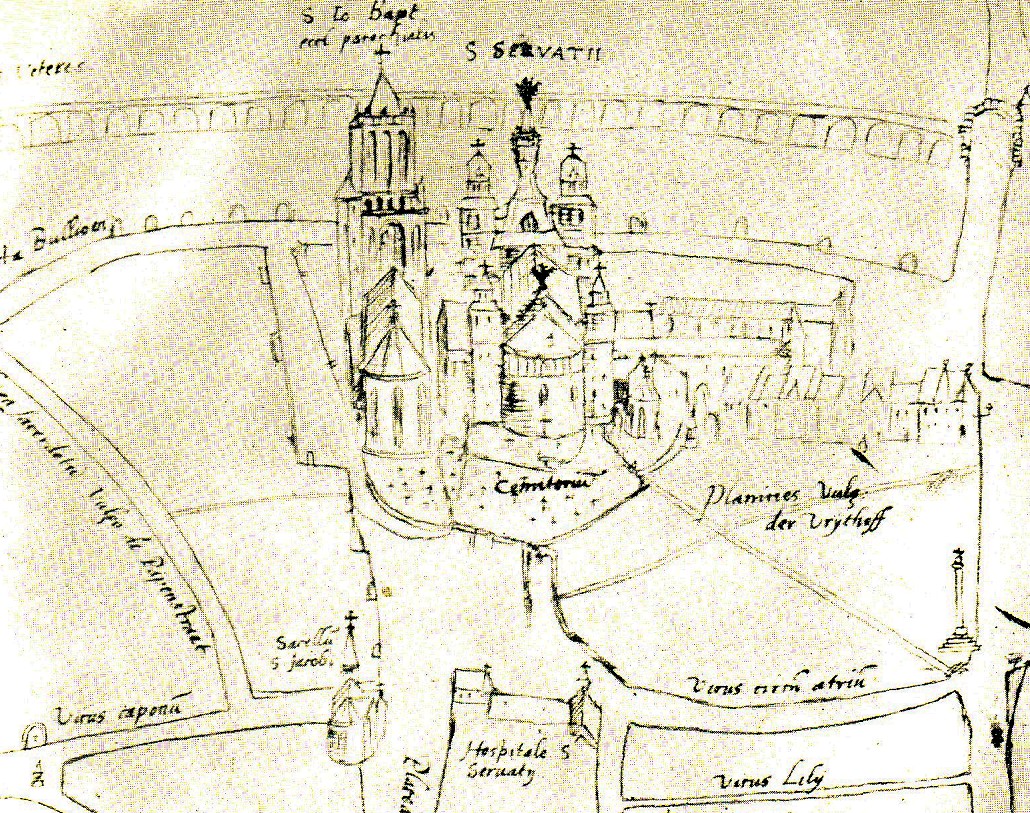 S Io bapt
eccl parochialis
S SERVATII
Veteres
ta Bullion
vulgo de Papenstraet
Cemiteriu
Planities Vulg.
der Vrythoff
Sacellu
S jacobi
Vicus caponu
Vicus circu atriu
Hospitale S
Servatij
Vicus Lily
Platea